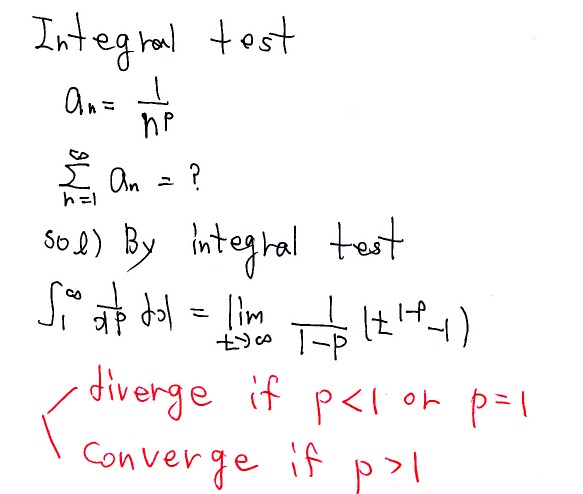 Integral test
aₙ = 1/n^p
∑_{n=1}^{∞} aₙ = ?
sol) By integral test
∫_1^∞ 1/x^p dx = lim_{t→∞} 1/(1-p) (t^{1-p} -1)
diverge if p<1 or p=1
converge if p>1